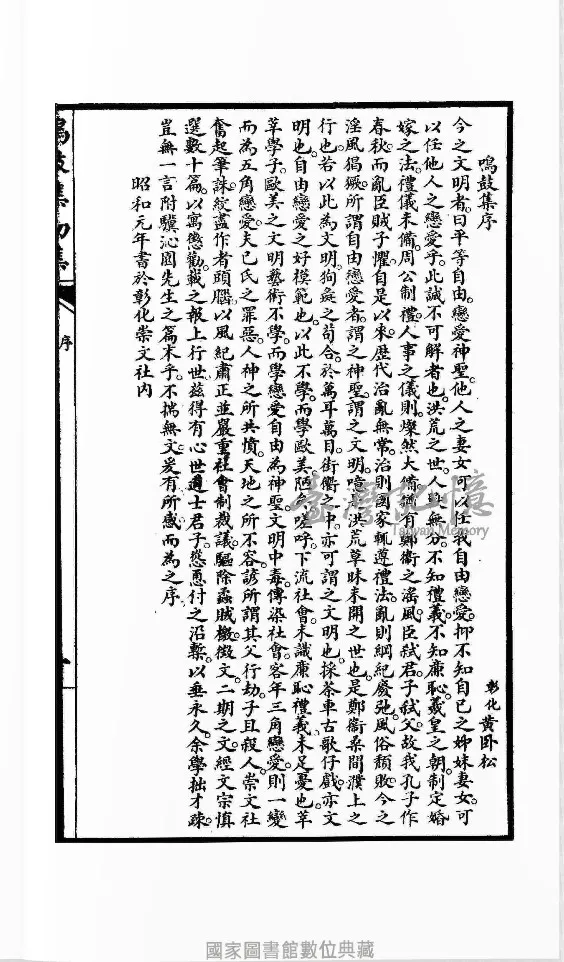 鳴鼓集序
彰化黄卧松
今之文明者。曰平等自由。戀愛神聖。他人之妻女。可以任我自由戀愛。抑不知自己之姊妹妻女。可
以任他人之戀愛乎。此誠不可解者也。洪荒之世。人獸無分。不知禮義。不知廉恥。羲皇之朝。制定婚
嫁之法。禮儀未備。周公制禮。人事之儀則。燦然大備。嘗有鄭衛之淫風。臣弒君。子弒父。故我孔子作
春秋。而亂臣賊子懼。自是以來。歷代治亂無常。治則國家輒遵禮法。亂則綱紀廢弛。風俗頹敗。今之
淫風猖獗。所謂自由戀愛者。謂之神聖。謂之文明。噫。洪荒草昧未開之世也。是鄭衛桑間濮上之
行也。若以此為文明。狗彘之苟合。於萬耳萬目。街衢之中。亦可謂之文明也。採茶車古歌仔戲。亦文
明也。自由戀愛之好模範也。以此不學。而學歐美陋 。嗟呼。下流社會。未識廉恥禮義。未足憂也。莘
莘學子。歐美之文明藝術不學。而學戀愛自由為神聖。文明中毒。傳染社會。客年三角戀愛。則一變
而為五角戀愛。夫己氏之罪惡。人神之所共憤。天地之所不容。諺所謂其父行劫。子且殺人。崇文社
奮起筆誅。紋盡作者頭腦。以風紀肅正。並嚴重社會制裁。議驅除蟊賊檄徵文。二期之文。經文宗慎
選數十篇。以寓懲勸。載之報上行世。茲得有心世道士君子。慫慂付之沿槧。以垂永久。余學拙才疎。
豈無一言附驥沁園先生之篇末乎。不揣無文。爰有所感而為之序。
昭和元年書於彰化崇文社內
鳴鼓集初集
序
一
臺灣記憶
Taiwan Memory
國家圖書館數位典藏